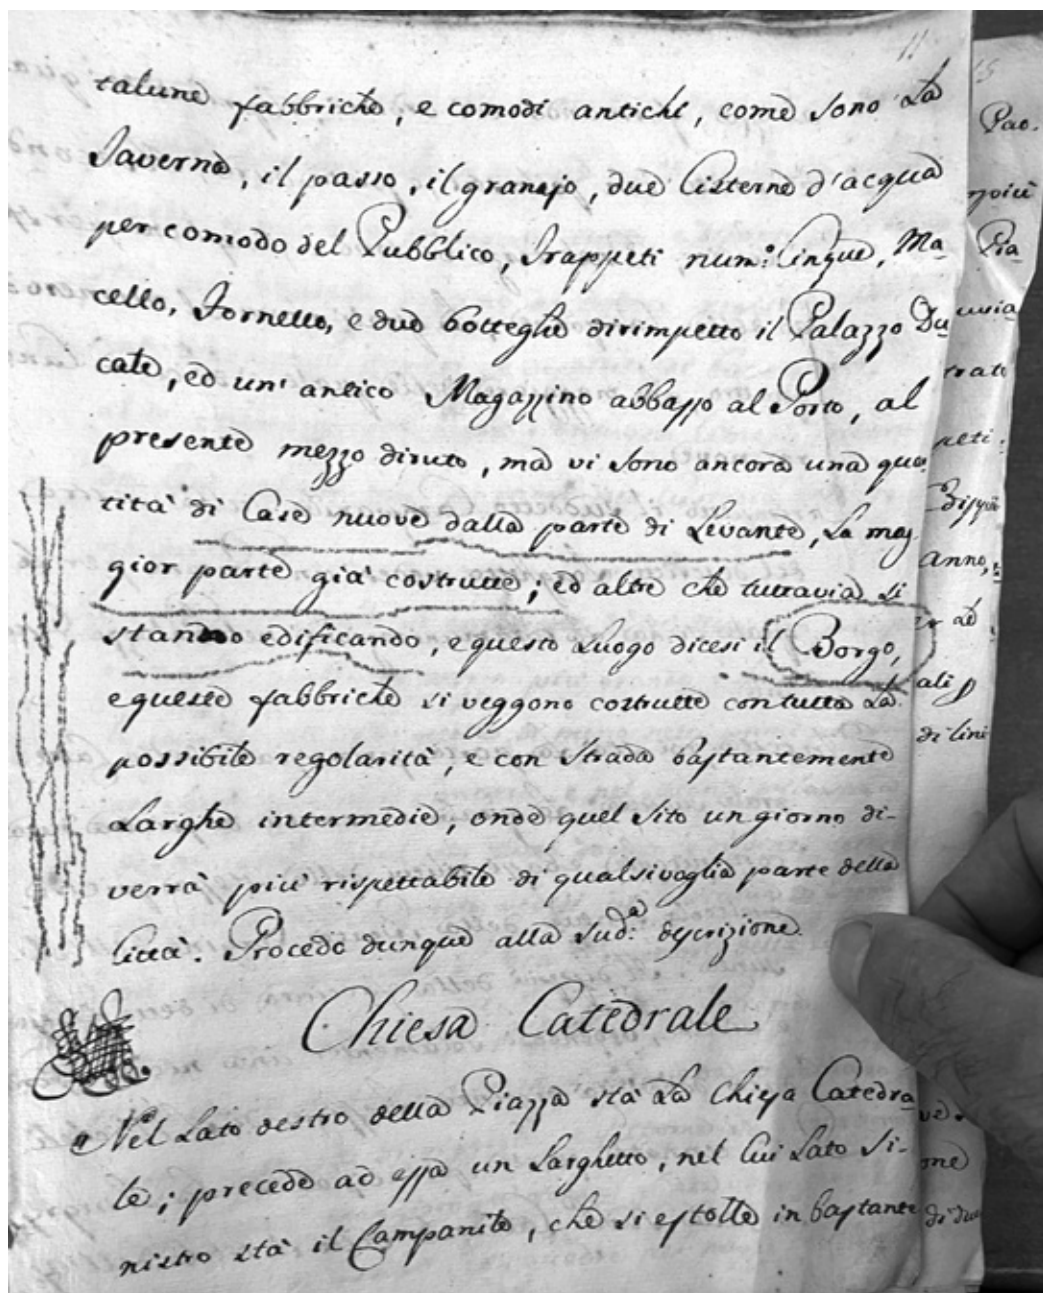 11.
talune fabbriche, e comodi antichi, come sono la
Taverna, il passo, il granajo, due Cisterne d'acqua
per comodo del Pubblico, Trappeti num:º Cinque, Ma-
cello, Fornello, e due botteghe dirimpetto il Palazzo Du-
cale, ed un' antico Magazzino abbasso al Porto, al
presente mezzo diruto, ma vi sono ancora una quan
tità di Case nuove dalla parte di Levante, la mag
gior parte già costrutte, ed altre che tuttavia si
stanno edificando, e questo Luogo dicesi il Borgo,
e queste fabbriche si veggono costrutte con tutta la
possibile regolarità, e con strade bastantemente
Larghe intermedie, onde quel sito un giorno di-
verrà più rispettabile di qualsivoglia parte della
Città. Procedo dunque alla sud:ª descrizione.
Chiesa Catedrale
Nel Lato destro della Piazza stà la Chiesa Catedra
le; precede ad essa un Larghetto, nel cui Lato si-
nistro stà il Campanile, che si estolle in bastante